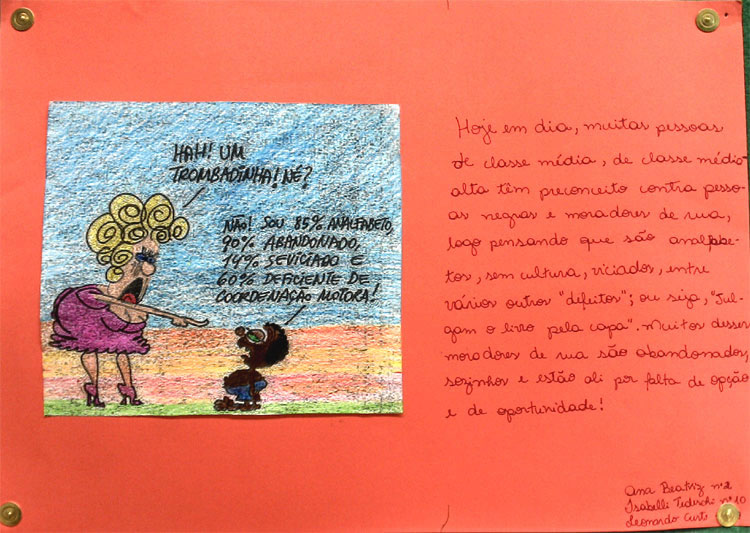 HAH! UM
TROMBADINHA! NÉ?
NÃO! SOU 85% ANALFABETO,
90% ABANDONADO,
14% SEVICIADO E
60% DEFICIENTE DE
COORDENAÇÃO MOTORA!
Hoje em dia, muitas pessoas
de classe média, de classe médio
alta têm preconceito contra pesso-
as negras e moradores de rua,
logo pensando que são analfabe-
tos, sem cultura, viciados, entre
vários outros "defeitos"; ou seja, "Jul-
gam o livro pela capa". Muitos desses
moradores de rua são abandonados,
sozinhos e estão ali por falta de opção
e de oportunidade!
Ana Beatriz nº2
Isabelli Tedeschi nº10
Leonardo